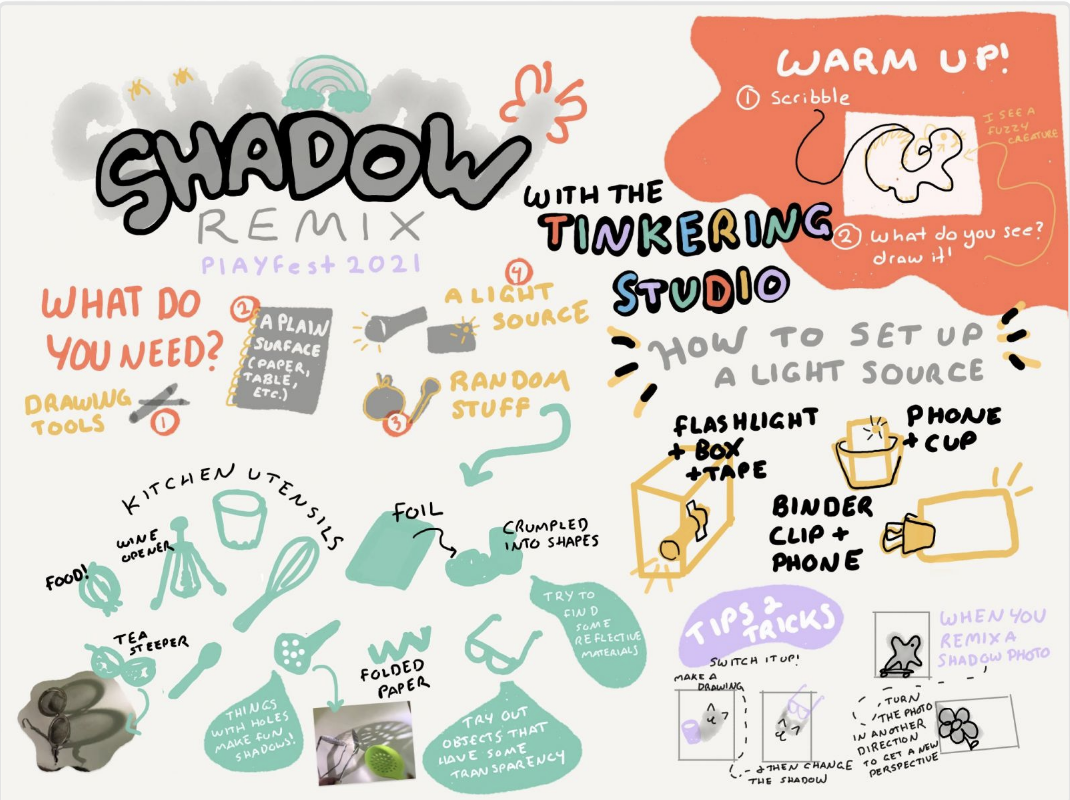 SHADOW
REMIX
PlAYFest 2021
WITH THE
TINKERING
STUDIO
WARM UP!
① Scribble
I SEE A
FUZZY
CREATURE
② What do you see?
draw it!
WHAT DO
YOU NEED?
DRAWING
TOOLS
①
②
A PLAIN
SURFACE
(PAPER,
TABLE,
ETC.)
④
A LIGHT
SOURCE
RANDOM
STUFF
③
HOW TO SET UP
A LIGHT SOURCE
FLASHLIGHT
+ BOX
+TAPE
PHONE
+ CUP
BINDER
CLIP +
PHONE
KITCHEN UTENSILS
WINE
OPENER
FOOD!
TEA
STEEPER
FOIL
CRUMPLED
INTO SHAPES
TRY TO
FIND
SOME
REFLECTIVE
MATERIALS
FOLDED
PAPER
THINGS
WITH HOLES
MAKE FUN
SHADOWS!
TRY OUT
OBJECTS THAT
HAVE SOME
TRANSPARENCY
TIPS &
TRICKS
SWITCH IT UP!
MAKE A
DRAWING
& THEN CHANGE
THE SHADOW
WHEN YOU
REMIX A
SHADOW PHOTO
TURN
THE PHOTO
IN ANOTHER
DIRECTION
TO GET A NEW
PERSPECTIVE